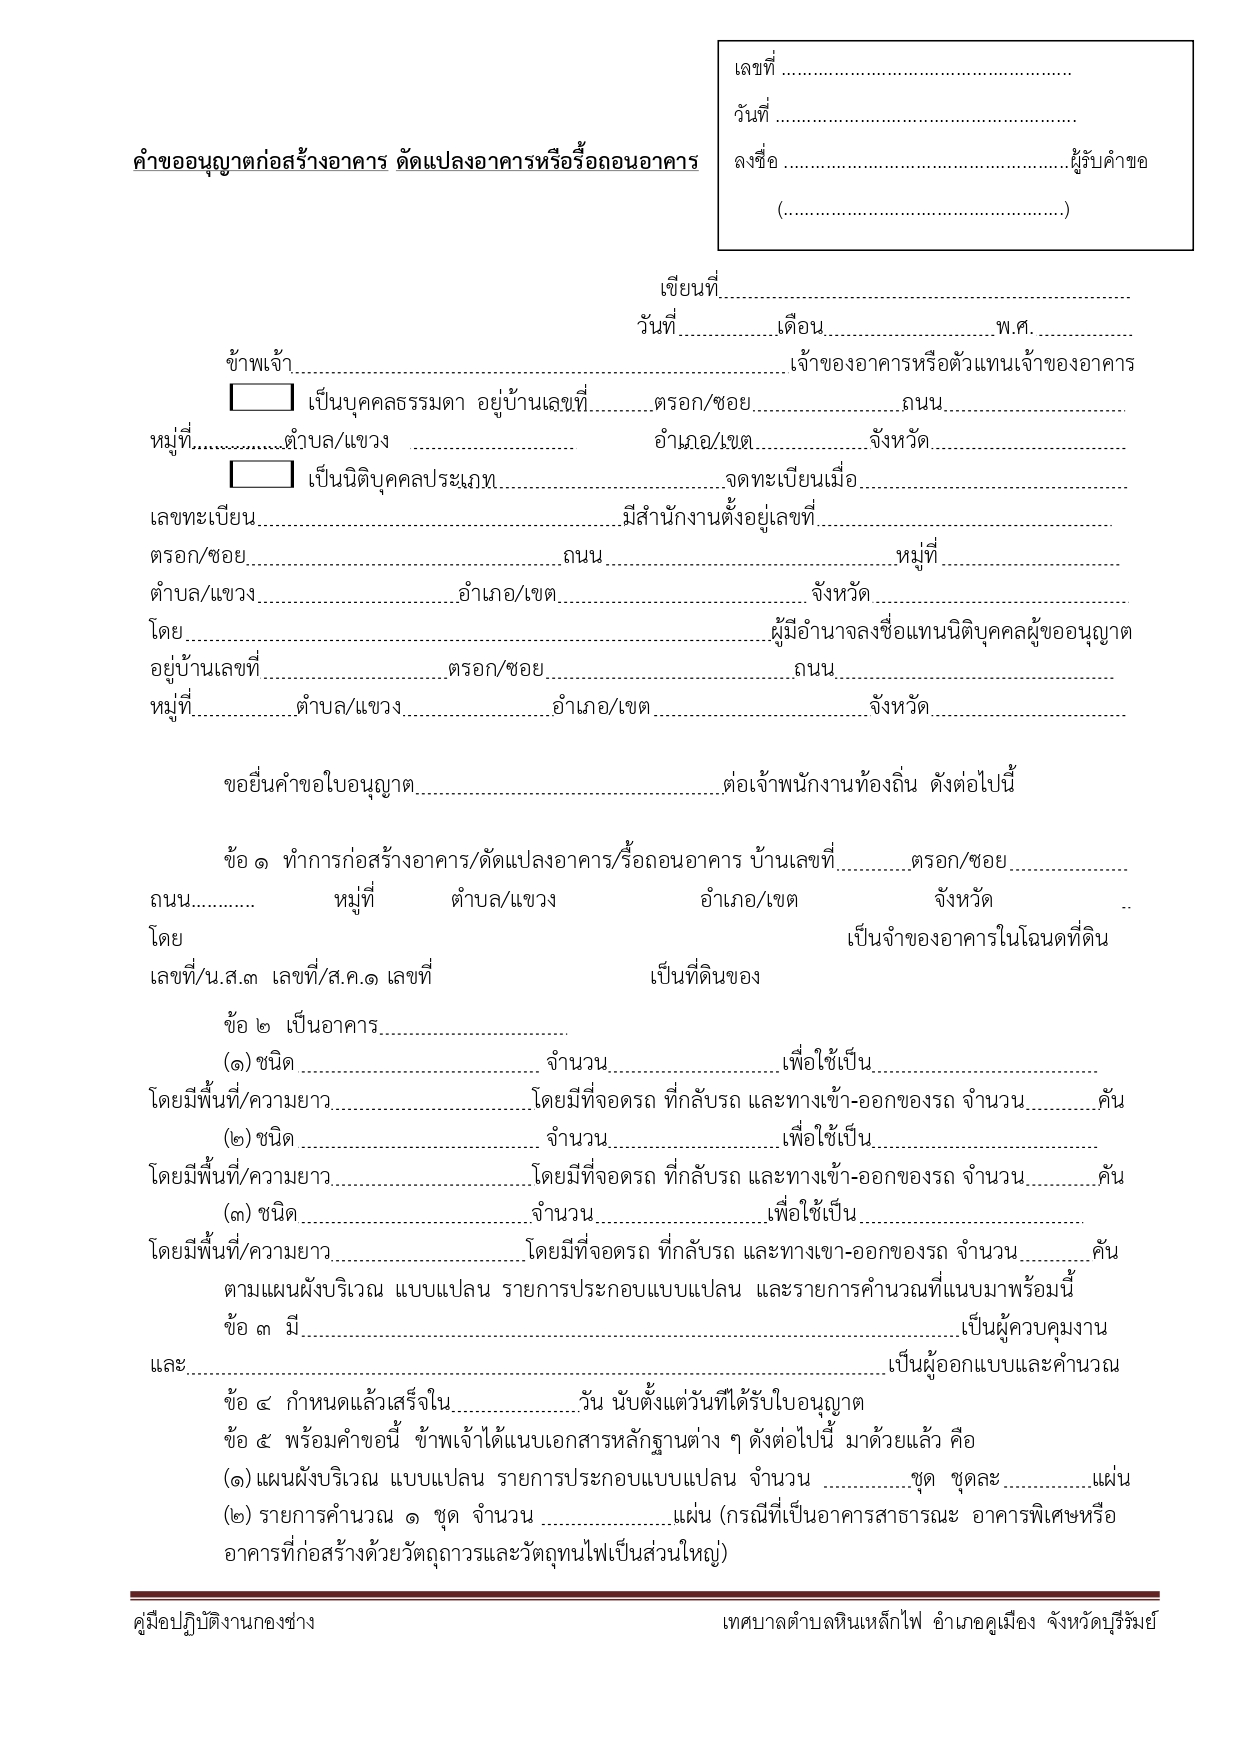 เลขที่ ........................................................
วันที่ ..........................................................
ลงชื่อ .......................................................ผู้รับคำขอ
(......................................................)
คำขออนุญาตก่อสร้างอาคาร ดัดแปลงอาคารหรือรื้อถอนอาคาร
เขียนที่..........................................................
วันที่..............เดือน........................พ.ศ. .............
ข้าพเจ้า......................................................................เจ้าของอาคารหรือตัวแทนเจ้าของอาคาร
เป็นบุคคลธรรมดา อยู่บ้านเลขที่.............ตรอก/ซอย.....................ถนน.........................
หมู่ที่.................ตำบล/แขวง ....................... อำเภอ/เขต................จังหวัด...........................
เป็นนิติบุคคลประเภท................................จดทะเบียนเมื่อ.....................................
เลขทะเบียน...................................................มีสำนักงานตั้งอยู่เลขที่.........................................
ตรอก/ซอย............................................ถนน.........................................หมู่ที่.........................
ตำบล/แขวง............................อำเภอ/เขต................................... จังหวัด...................................
โดย..................................................................................ผู้มีอำนาจลงชื่อแทนนิติบุคคลผู้ขออนุญาต
อยู่บ้านเลขที่..........................ตรอก/ซอย..................................ถนน.......................................
หมู่ที่...............ตำบล/แขวง.....................อำเภอ/เขต..............................จังหวัด...........................
ขอยื่นคำขอใบอนุญาต...........................................ต่อเจ้าพนักงานท้องถิ่น ดังต่อไปนี้
ข้อ ๑ ทำการก่อสร้างอาคาร/ดัดแปลงอาคาร/รื้อถอนอาคาร บ้านเลขที่..........ตรอก/ซอย................
ถนน............ หมู่ที่ ตำบล/แขวง อำเภอ/เขต จังหวัด ..
โดย เป็นจำของอาคารในโฉนดที่ดิน
เลขที่/น.ส.๓ เลขที่/ส.ค.๑ เลขที่ เป็นที่ดินของ
ข้อ ๒ เป็นอาคาร..........................
(๑) ชนิด ................................. จำนวน........................เพื่อใช้เป็น...............................
โดยมีพื้นที่/ความยาว............................โดยมีที่จอดรถ ที่กลับรถ และทางเข้า-ออกของรถ จำนวน..........คัน
(๒) ชนิด ................................. จำนวน........................เพื่อใช้เป็น...............................
โดยมีพื้นที่/ความยาว............................โดยมีที่จอดรถ ที่กลับรถ และทางเข้า-ออกของรถ จำนวน..........คัน
(๓) ชนิด................................จำนวน........................เพื่อใช้เป็น...............................
โดยมีพื้นที่/ความยาว...........................โดยมีที่จอดรถ ที่กลับรถ และทางเขา-ออกของรถ จำนวน..........คัน
ตามแผนผังบริเวณ แบบแปลน รายการประกอบแบบแปลน และรายการคำนวณที่แนบมาพร้อมนี้
ข้อ ๓ มี............................................................................................เป็นผู้ควบคุมงาน
และ..................................................................................................เป็นผู้ออกแบบและคำนวณ
ข้อ ๔ กำหนดแล้วเสร็จใน..................วัน นับตั้งแต่วันทีได้รับใบอนุญาต
ข้อ ๕ พร้อมคำขอนี้ ข้าพเจ้าได้แนบเอกสารหลักฐานต่าง ๆ ดังต่อไปนี้ มาด้วยแล้ว คือ
(๑) แผนผังบริเวณ แบบแปลน รายการประกอบแบบแปลน จำนวน ............ชุด ชุดละ............แผ่น
(๒) รายการคำนวณ ๑ ชุด จำนวน ..................แผ่น (กรณีที่เป็นอาคารสาธารณะ อาคารพิเศษหรือ
อาคารที่ก่อสร้างด้วยวัตถุถาวรและวัตถุทนไฟเป็นส่วนใหญ่)
คู่มือปฏิบัติงานกองช่าง เทศบาลตำบลหินเหล็กไฟ อำเภอคูเมือง จังหวัดบุรีรัมย์